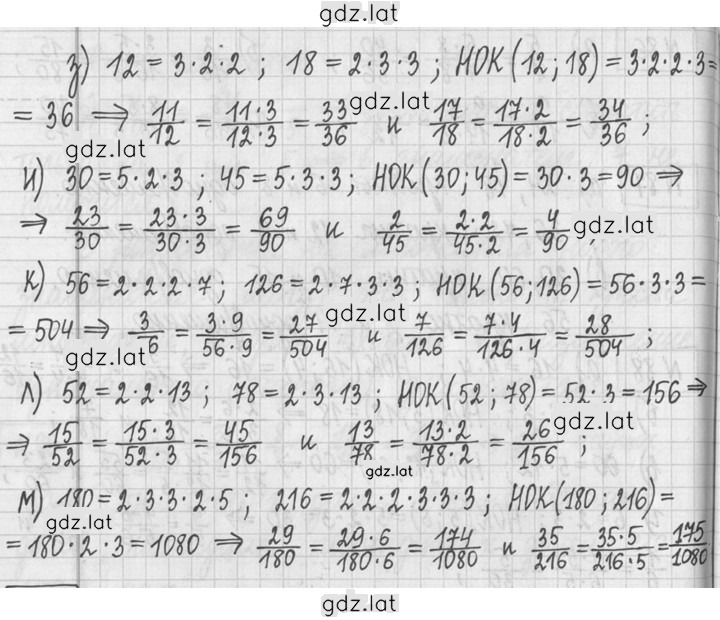 gdz.lat
з) 12 = 3·2·2 ; 18 = 2·3·3 ; НОК(12;18) = 3·2·2·3 =
= 36 ⟹ 11/12 = 11·3/12·3 = 33/36 и 17/18 = 17·2/18·2 = 34/36 ;
gdz.lat
gdz.lat
и) 30 = 5·2·3 ; 45 = 5·3·3 ; НОК(30;45) = 30·3 = 90 ⟹
⟹ 23/30 = 23·3/30·3 = 69/90 и 2/45 = 2·2/45·2 = 4/90 ;
gdz.lat
к) 56 = 2·2·2·7 ; 126 = 2·7·3·3 ; НОК(56;126) = 56·3·3 =
= 504 ⟹ 3/6 = 3·9/56·9 = 27/504 и 7/126 = 7·4/126·4 = 28/504 ;
gdz.lat
gdz.lat
л) 52 = 2·2·13 ; 78 = 2·3·13 ; НОК(52;78) = 52·3 = 156 ⟹
⟹ 15/52 = 15·3/52·3 = 45/156 и 13/78 = 13·2/78·2 = 26/156 ;
gdz.lat
gdz.lat
м) 180 = 2·3·3·2·5 ; 216 = 2·2·2·3·3·3 ; НОК(180;216) =
gdz.lat
= 180·2·3 = 1080 ⟹ 29/180 = 29·6/180·6 = 174/1080 и 35/216 = 35·5/216·5 = 175/1080
gdz.lat